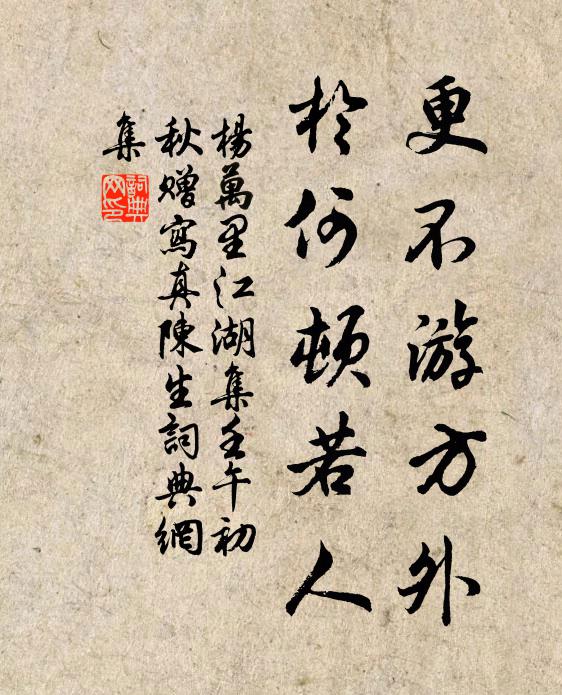 更不游方外
於何頓若人
楊萬里江湖集壬午初
秋贈寫真陳生詞典網
集
詞典
网印